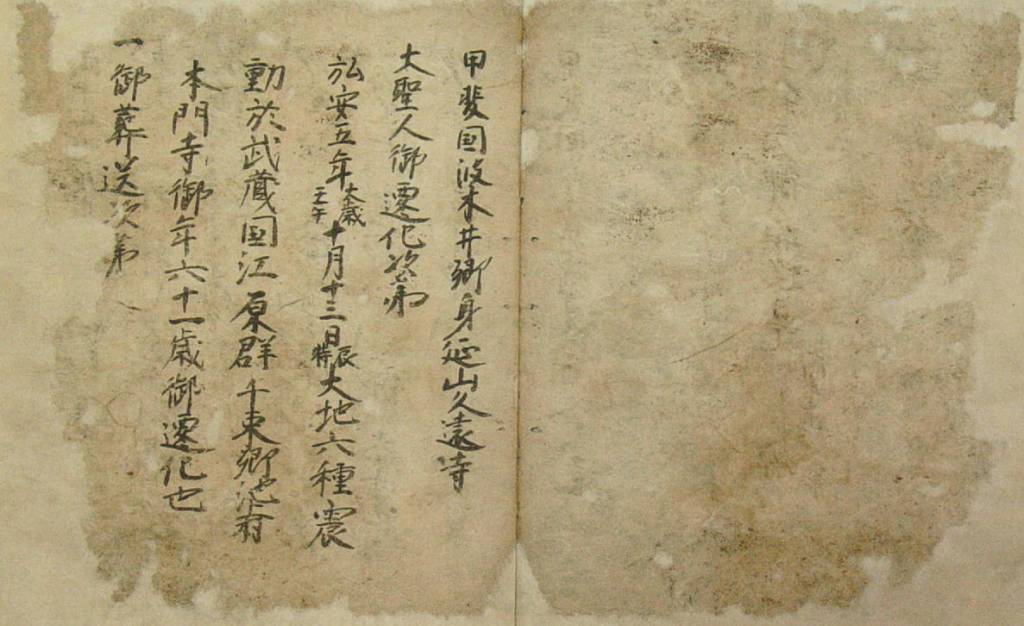 甲斐国波木井郷身延山久遠寺
大聖人御遷化次第
弘安五年太歳壬午十月十三日辰時大地六種震
動於武蔵国江原群千束郷池上村
本門寺御年六十一歳御遷化也
一御葬送次第